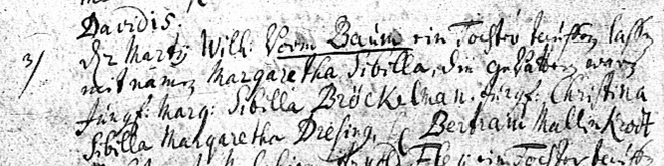 Davidis.
3/ Wilh: Vorm Baum ein Tochter tauffen lassen
mit namen Margaretha Sibilla, die gevattern waren
Jungf: Marg: Sibilla Bröckelman. Jungf: Christina
Sibilla Margaretha Dresing, Bertram Mallinkrodt
ein Tochter